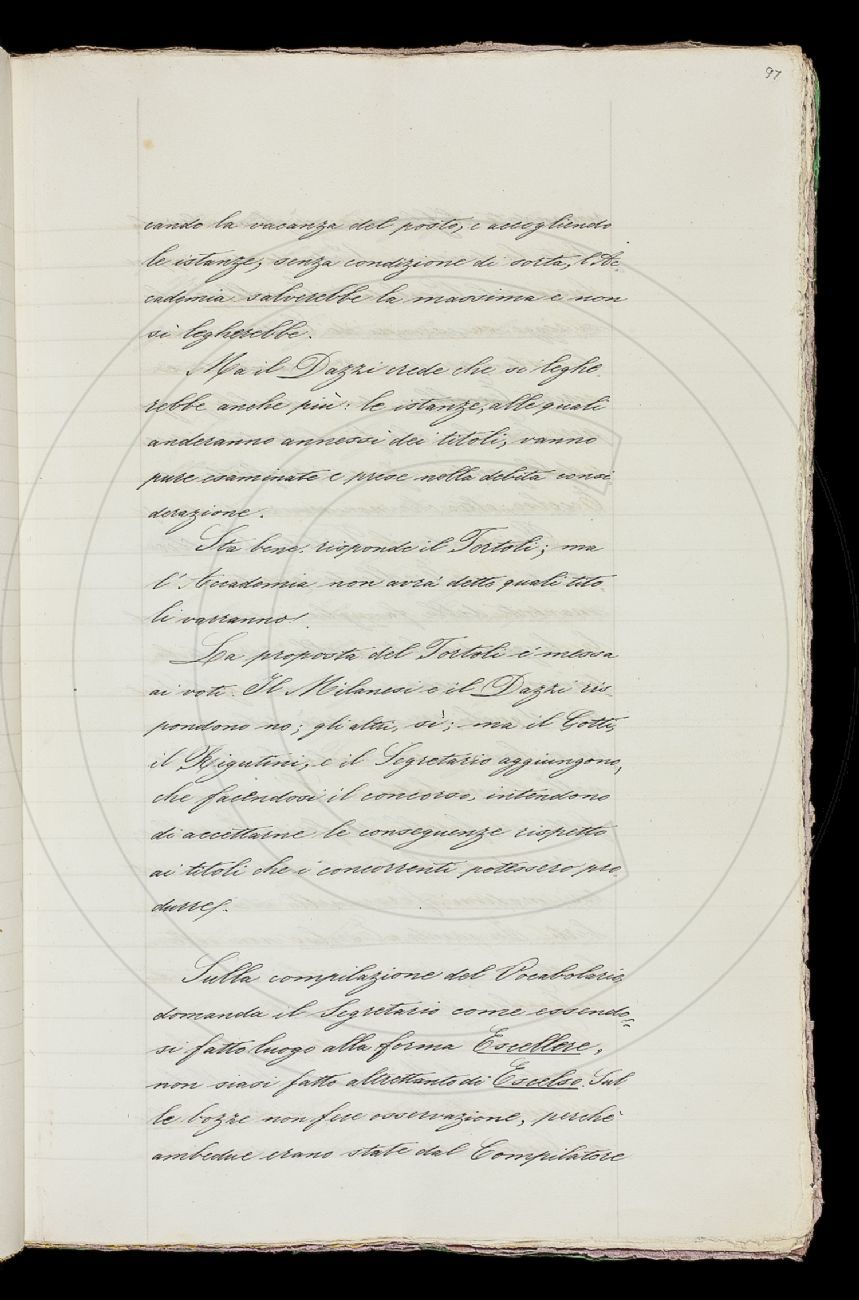 97
cando la vacanza del posto, e accogliendo
le istanze, senza condizione di sorta, l'Ac-
cademia salverebbe la massima e non
si legherebbe.
Ma il Dazzi crede che si leghe
rebbe anche più: le istanze, alle quali
anderanno annessi dei titoli, vanno
pure esaminate e prese nella debita consi
derazione.
Sta bene. risponde il Tortoli; ma
l'Accademia non avrà detto quali tito
li varranno.
La proposta del Tortoli è messa
ai voti. Il Milanesi e il Dazzi ris
pondono no; gli altri, sì; ma il Gotti,
il Rigutini, e il Segretario aggiungono,
che facendosi il concorso, intendono
di accettarne le conseguenze rispetto
ai titoli che i concorrenti potessero pro
durre.
Sulla compilazione del Vocabolario
domanda il Segretario come essendo-
si fatto luogo alla forma Escellere,
non siasi fatto altrettanto di Escelso. Sul
le bozze non fece osservazione, perchè
ambedue erano state dal Compilatore